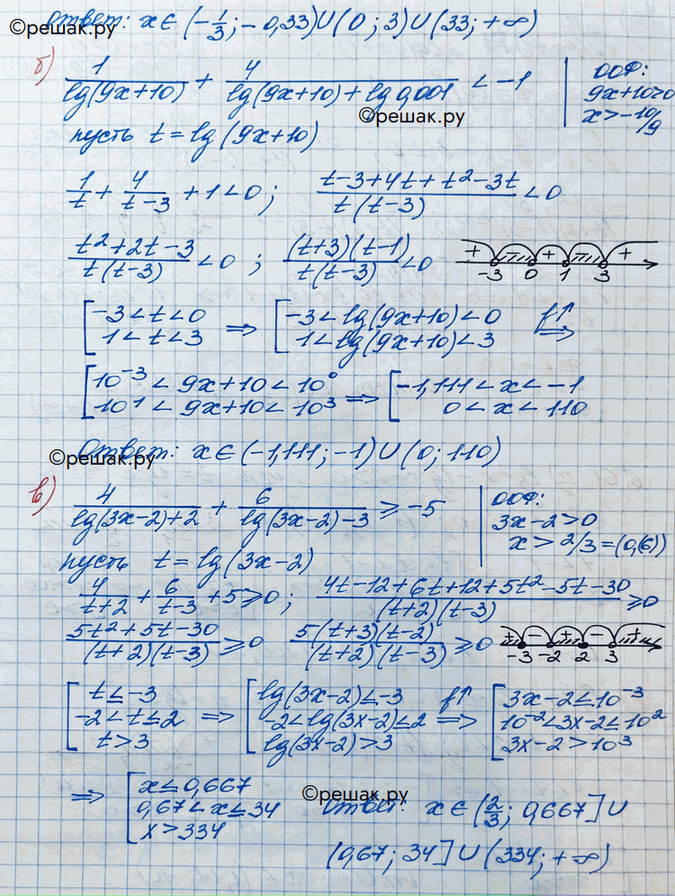 Ответ: x ∈ (-1/3; -0,33) ∪ (0; 3) ∪ (33; +∞)
©решак.ру
б) 1/lg(9x+10) + 4/(lg(9x+10)+lg 0,001) < -1 | ООФ:
9x+10>0
x>-10/9
©решак.ру
пусть t = lg(9x+10)
1/t + 4/(t-3) + 1 < 0; (t-3+4t+t²-3t)/(t(t-3)) < 0
(t²+2t-3)/(t(t-3)) < 0; ((t+3)(t-1))/(t(t-3)) < 0 + + +
-3 0 1 3
[ -3<t<0 ⇒ [ -3<lg(9x+10)<0 f↑ ⇒
1<t<3 1<lg(9x+10)<3
[ 10⁻³ < 9x+10 < 10⁰ ⇒ [ -1,111<x<-1
10¹ < 9x+10 < 10³ 0<x<110
Ответ: x ∈ (-1,111; -1) ∪ (0; 110)
©решак.ру
в) 4/(lg(3x-2)+2) + 6/(lg(3x-2)-3) ≥ -5 | ООФ:
3x-2>0
x>2/3=(0,(6))
пусть t = lg(3x-2)
4/(t+2) + 6/(t-3) + 5 ≥ 0; (4t-12+6t+12+5t²-5t-30)/((t+2)(t-3)) ≥ 0
(5t²+5t-30)/((t+2)(t-3)) ≥ 0 5(t+3)(t-2)/((t+2)(t-3)) ≥ 0 + - + - +
-3 -2 2 3
[ t≤-3 ⇒ [ lg(3x-2)≤-3 f↑ ⇒ [ 3x-2≤10⁻³
-2<t≤2 -2<lg(3x-2)≤2 10⁻²<3x-2≤10²
t>3 lg(3x-2)>3 3x-2>10³
⇒ [ x≤0,667
0,67<x≤34
x>334
©решак.ру
Ответ: x ∈ (2/3; 0,667] ∪
(0,67; 34] ∪ (334; +∞)